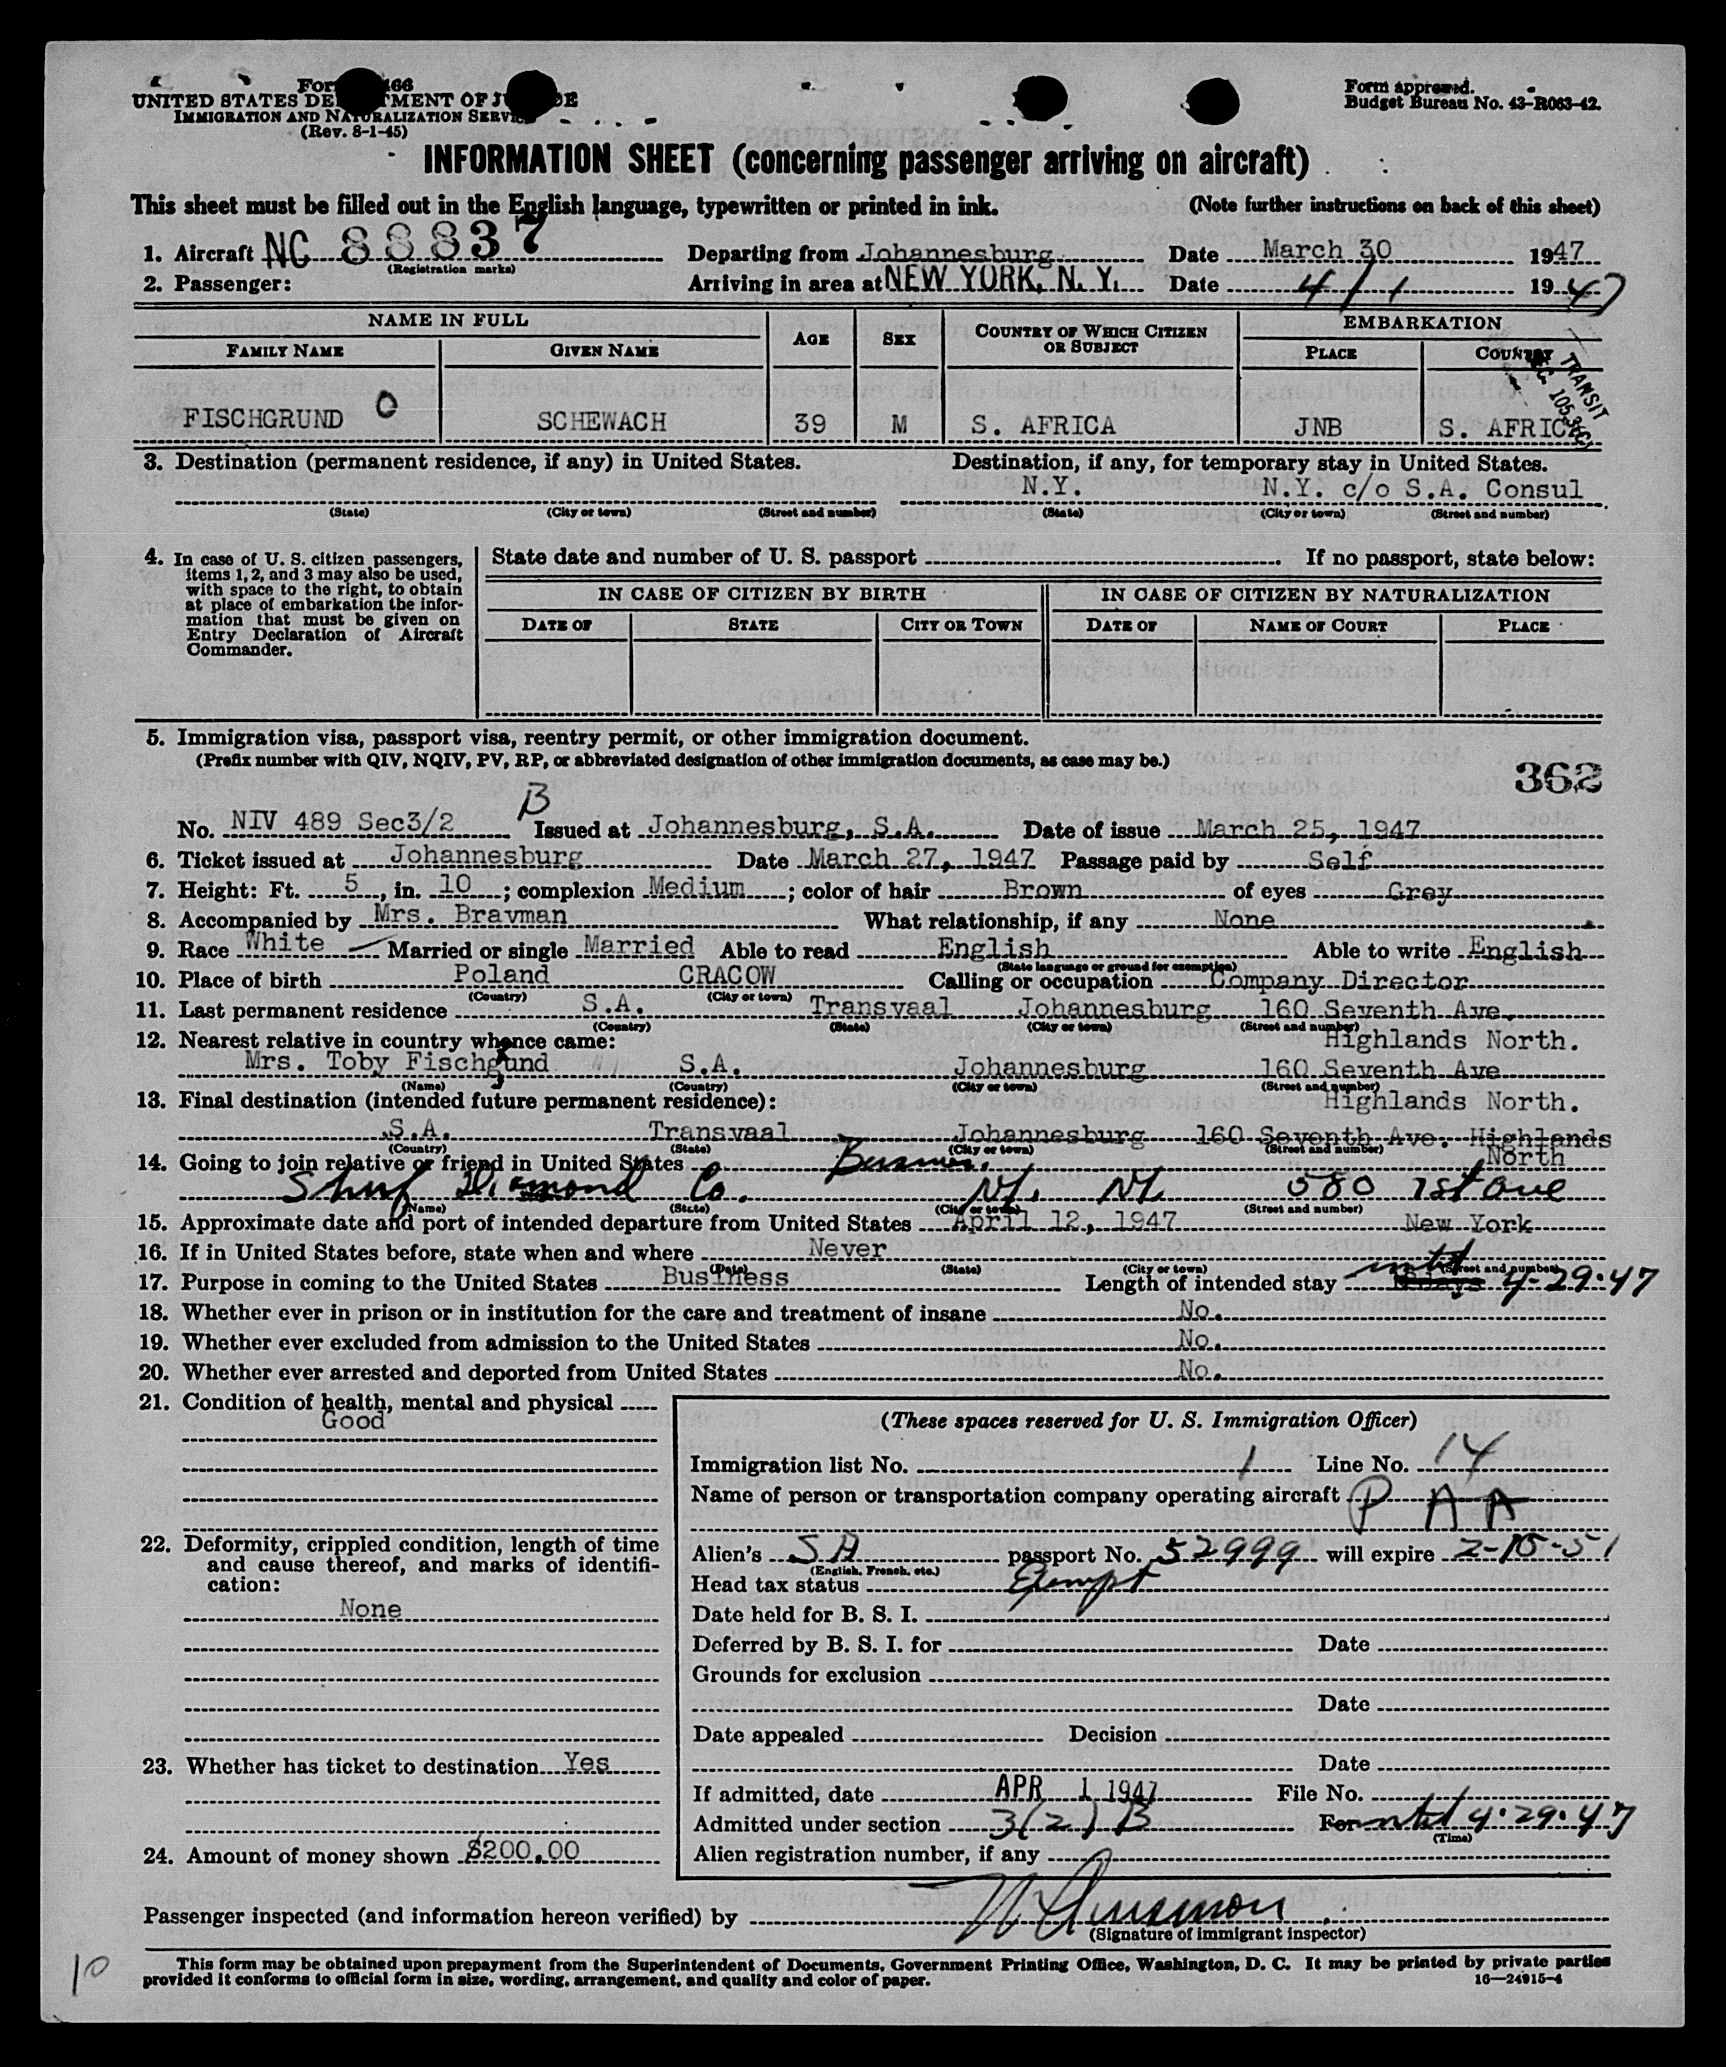 Form 466
UNITED STATES DEPARTMENT OF JUSTICE
IMMIGRATION AND NATURALIZATION SERVICE
(Rev. 8-1-45)
Form approved.
Budget Bureau No. 43-R063-42.
INFORMATION SHEET (concerning passenger arriving on aircraft)
This sheet must be filled out in the English language, typewritten or printed in ink. (Note further instructions on back of this sheet)
1. Aircraft NC 88837 Departing from Johannesburg Date March 30 1947
(Registration marks)
2. Passenger: Arriving in area at NEW YORK, N. Y. Date 4/1 1947
NAME IN FULL AGE SEX COUNTRY OF WHICH CITIZEN OR SUBJECT EMBARKATION
FAMILY NAME GIVEN NAME PLACE COUNTRY
TRANSIT
105.3(C)
FISCHGRUND O SCHEWACH 39 M S. AFRICA JNB S. AFRICA
3. Destination (permanent residence, if any) in United States. Destination, if any, for temporary stay in United States.
N.Y. N.Y. c/o S.A. Consul
(State) (City or town) (Street and number) (State) (City or town) (Street and number)
4. In case of U. S. citizen passengers, items 1, 2, and 3 may also be used, with space to the right, to obtain at place of embarkation the information that must be given on Entry Declaration of Aircraft Commander.
State date and number of U. S. passport If no passport, state below:
IN CASE OF CITIZEN BY BIRTH IN CASE OF CITIZEN BY NATURALIZATION
DATE OF STATE CITY OR TOWN DATE OF NAME OF COURT PLACE
5. Immigration visa, passport visa, reentry permit, or other immigration document.
(Prefix number with QIV, NQIV, PV, RP, or abbreviated designation of other immigration documents, as case may be.)
362
B
No. NIV 489 Sec3/2 Issued at Johannesburg, S.A. Date of issue March 25, 1947
6. Ticket issued at Johannesburg Date March 27, 1947 Passage paid by Self
7. Height: Ft. 5, in. 10; complexion Medium; color of hair Brown of eyes Grey
8. Accompanied by Mrs. Bravman What relationship, if any None
9. Race White Married or single Married Able to read English Able to write English
(State language or ground for exemption)
10. Place of birth Poland CRACOW Calling or occupation Company Director
(Country) (City or town)
11. Last permanent residence S.A. Transvaal Johannesburg 160 Seventh Ave.
(Country) (State) (City or town) (Street and number)
12. Nearest relative in country whence came: Highlands North.
Mrs. Toby Fischgrund S.A. Johannesburg 160 Seventh Ave
(Name) (Country) (City or town) (Street and number)
13. Final destination (intended future permanent residence): Highlands North.
S.A. Transvaal Johannesburg 160 Seventh Ave. Highlands
(Country) (State) (City or town) (Street and number) North
14. Going to join relative or friend in United States Business.
Diamond Co. NY. NY. 580 1st ave
(Name) (State) (City or town) (Street and number)
15. Approximate date and port of intended departure from United States April 12, 1947 New York
16. If in United States before, state when and where Never
(Date) (State) (City or town) (Street and number)
17. Purpose in coming to the United States Business Length of intended stay until 4-29-47
18. Whether ever in prison or in institution for the care and treatment of insane No.
19. Whether ever excluded from admission to the United States No.
20. Whether ever arrested and deported from United States No.
21. Condition of health, mental and physical
Good
22. Deformity, crippled condition, length of time and cause thereof, and marks of identification:
None
23. Whether has ticket to destination Yes
24. Amount of money shown $200.00
(These spaces reserved for U. S. Immigration Officer)
Immigration list No. 1 Line No. 14
Name of person or transportation company operating aircraft P A A
Alien's SA passport No. 52999 will expire 2-15-51
(English, French, etc.)
Head tax status Exempt
Date held for B. S. I.
Deferred by B. S. I. for Date
Grounds for exclusion
Date
Date appealed Decision
Date
If admitted, date APR 1 1947 File No.
Admitted under section 3(2) B For until 4-29-47
(Time)
Alien registration number, if any
Passenger inspected (and information hereon verified) by
(Signature of immigrant inspector)
This form may be obtained upon prepayment from the Superintendent of Documents, Government Printing Office, Washington, D. C. It may be printed by private parties
provided it conforms to official form in size, wording, arrangement, and quality and color of paper. 16—24915-4
10